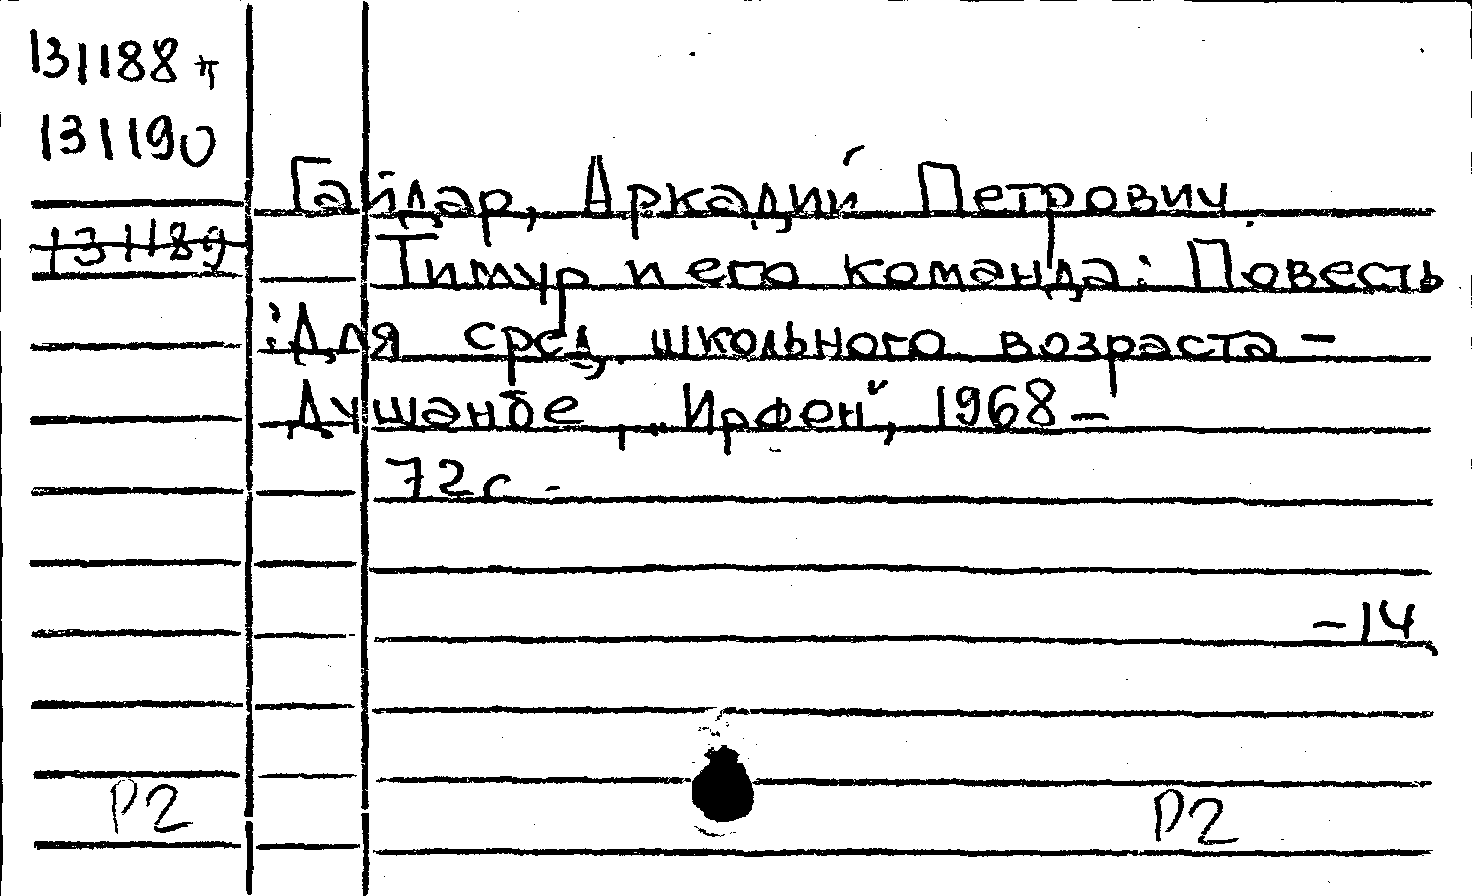 131188 π
131190
131189
Гайдар, Аркадий Петрович.
Тимур и его команда: Повесть
: Для сред. школьного возраста –
Душанбе, „Ирфон", 1968 –
72 с. -
- 14
P2
P2